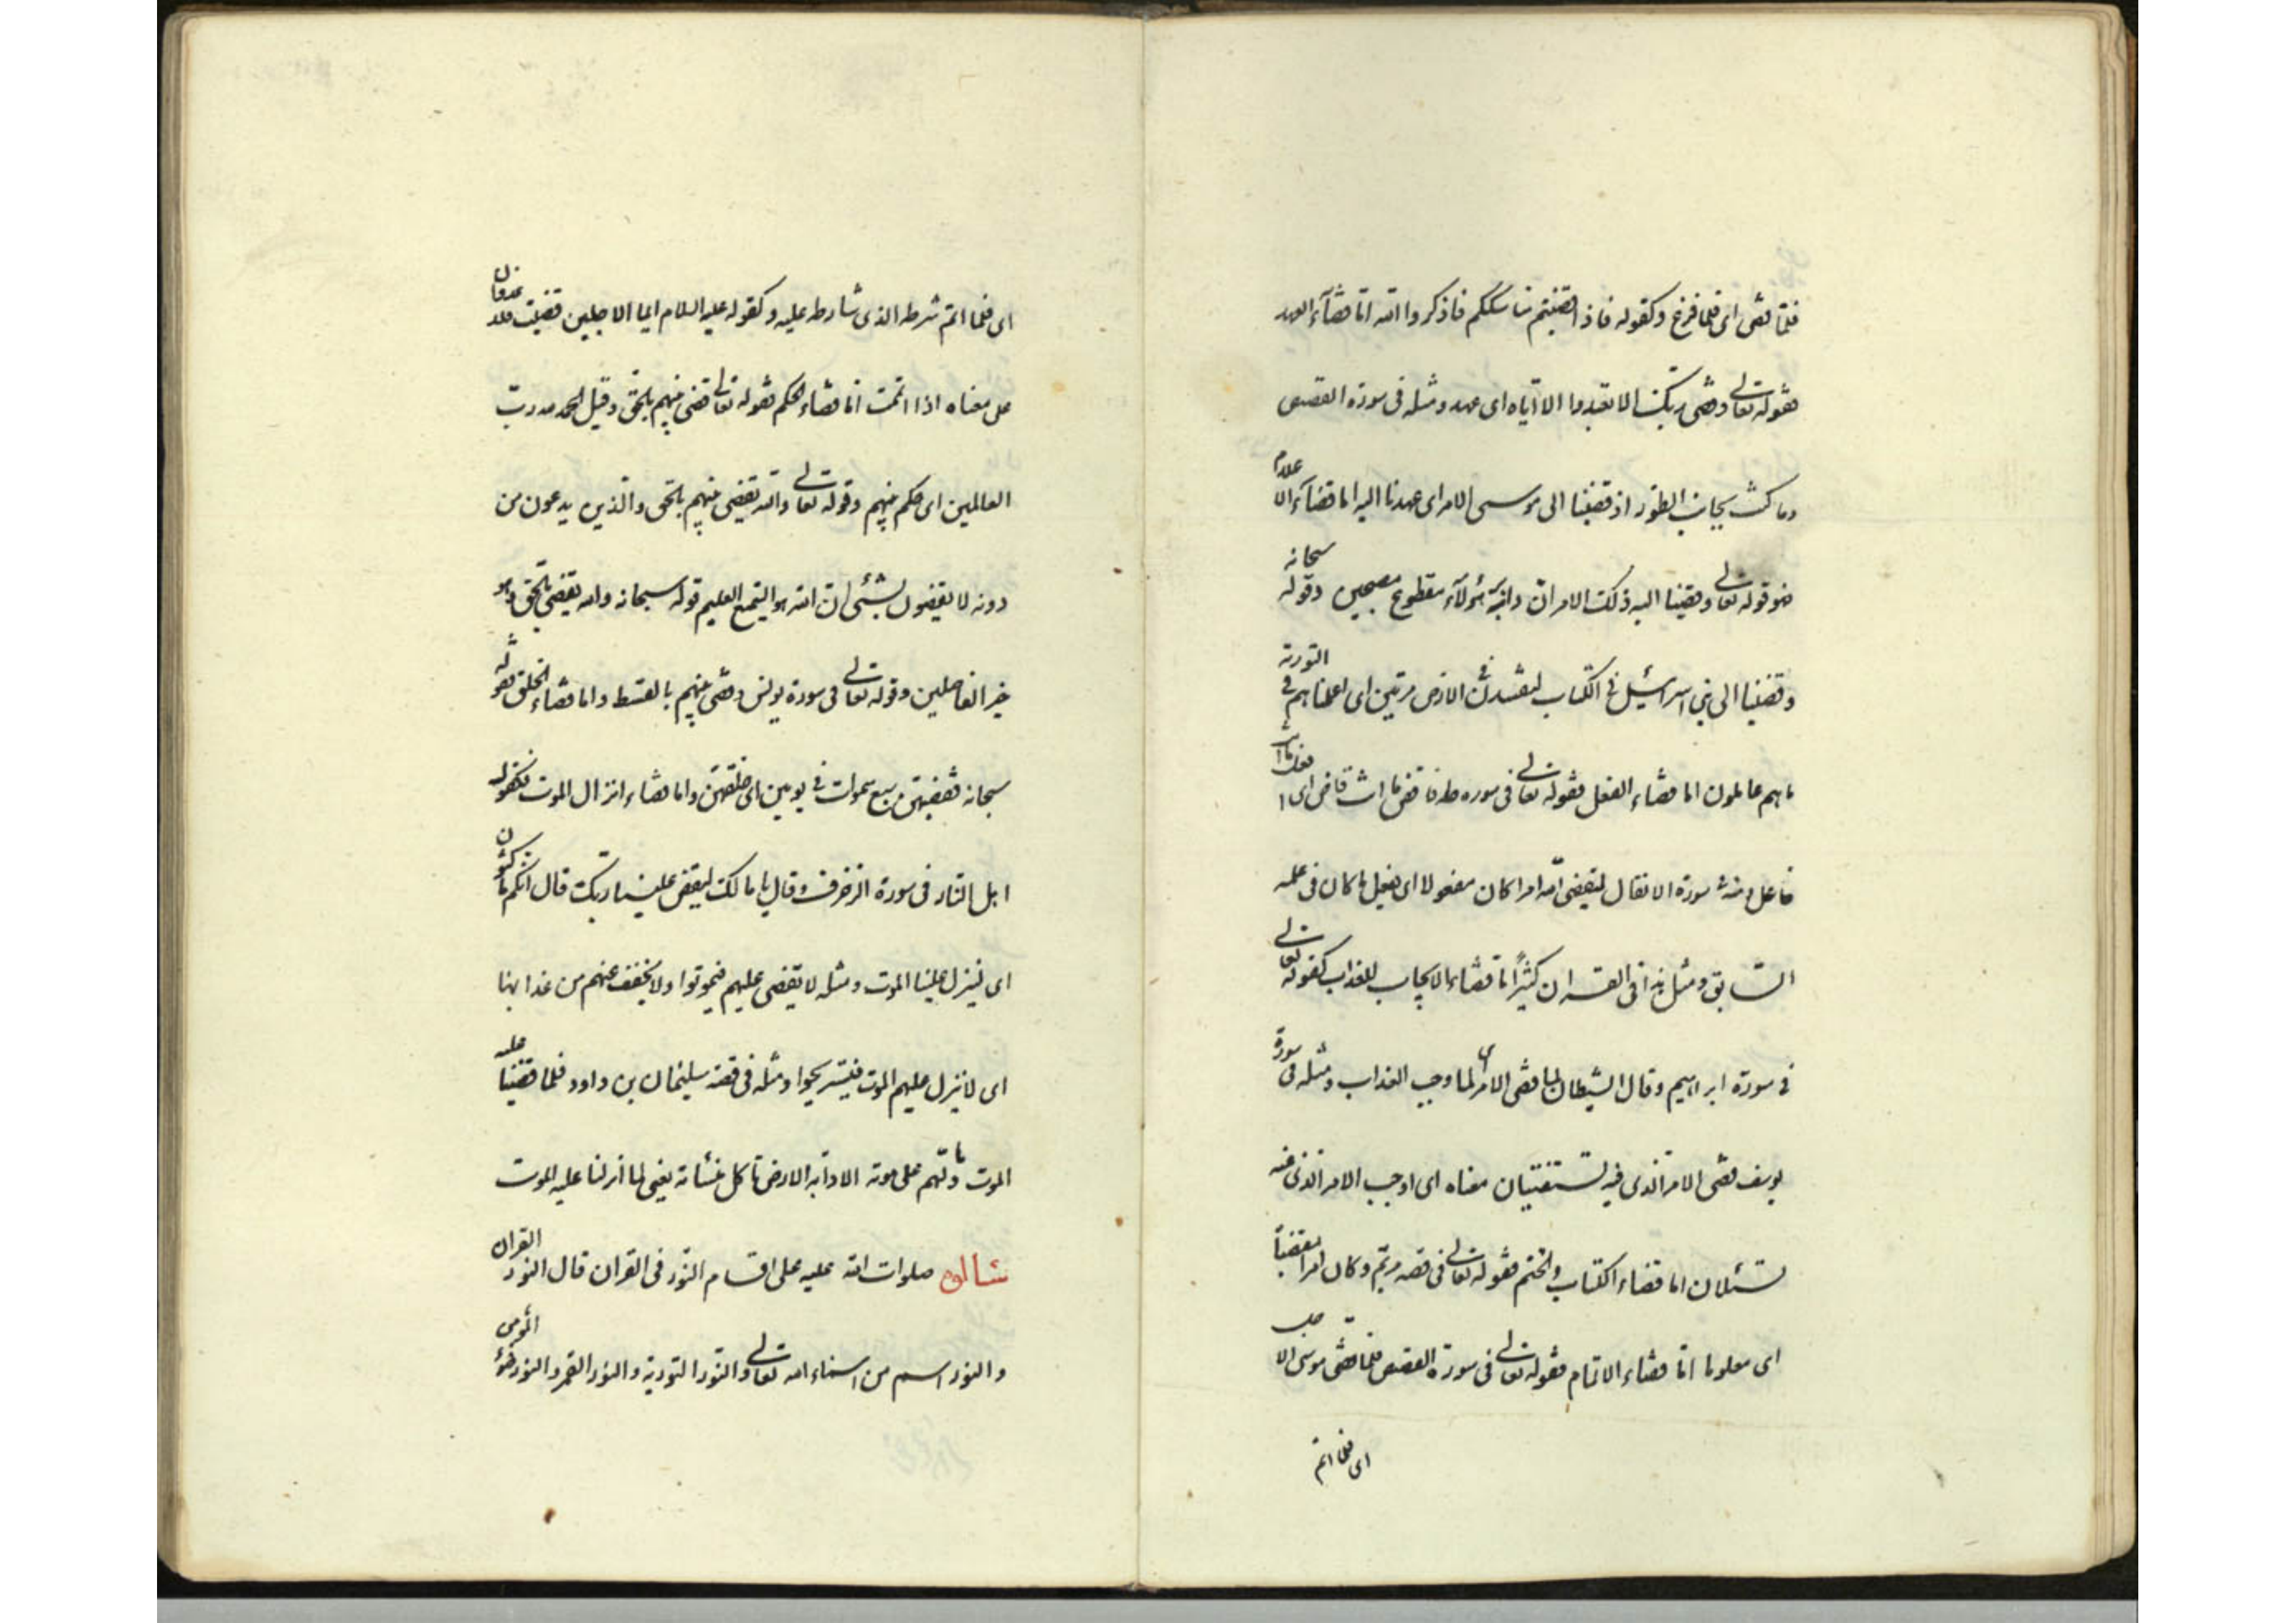 فلمّا قضى اى فلما فرغ وكقوله فاذا قضيتم مناسككم فاذكروا الله امّا قضآء العهد
فقوله تعالى وقضى ربّك الا تعبدوا الا ايّاه اى عهد ومثله فى سورة القصص
وما كنت بجانب الطور اذ قضينا الى موسى الامر اى عهدنا اليه اما قضآء الاعلام
فهو قوله تعالى وقضينا اليه ذلك الامر انّ دابر هؤلآء مقطوع مصبحين وقوله سبحانه
وقضينا الى بنى اسرائيل فى الكتاب لتفسدنّ فى الارض مرتين اى اعلمناهم فى التورية
ما هم عاملون اما قضاء الفعل فقوله تعالى فى سورة طه فاقض ما انت قاض اى افعل ما انت
فاعل ومنه سورة الانفال ليقضى الله امرا كان مفعولا اى يفعل ما كان فى علمه
السّابق ومثل هذا فى القران كثيرًا امّا قضاء الايجاب للعذاب كقوله تعالى
فى سورة ابراهيم وقال الشيطان لما قضى الامر اى لما وجب العذاب ومثله فى سورة
يوسف قضى الامر الّذى فيه تستفتيان معناه اى اوجب الامر الّذى عنه
تسئلان اما قضاء الكتاب والختم فقوله تعالى فى قصه مريم وكان امرا مقضيّاً
اى معلوما امّا قضاء الاتمام فقوله تعالى فى سورة القصص فلما قضى موسى الاجل
اى فلما اتم
اى فلما اتم شرطه الذى شارطه عليه وكقوله عليه السلام ايما الاجلين قضيت فلا عدوان
على معناه اذا اتممت امّا قضاء الحكم فقوله تعالى قضى بينهم بالحقّ وقيل الحمد لله ربّ
العالمين اى حكم بينهم وقوله تعالى والله يقضى بينهم بالحق والّذين يدعون من
دونه لا يقضون بشئى انّ الله هو السّميع العليم قوله سبحانه والله يقضى بالحق وهو
خير الفاصلين وقوله تعالى فى سورة يونس وقضى بينهم بالقسط واما قضاء الخلق فقوله
سبحانه فقضيهنّ سبع سموات فى يومين اى خلقهنّ واما قضاء انزال الموت فكقول
اهل النّار فى سورة الزخرف وقال يا مالك ليقض علينا ربّك قال انّكم ماكثون
اى لينزل علينا الموت ومثله لا يقضى عليهم فيموتوا ولا يخفّف عنهم من عذابها
اى لا ينزل عليهم الموت فيستريحوا ومثله فى قصة سليمان بن داود فلما قضينا عليه
الموت ما دلّهم على موته الا دآبه الارض تاكل منسأته يعنى لما انزلنا عليه الموت
صلوات الله عليه على اقسام النّور فى القران قال النور القران
والنور اسم من اسماء الله تعالى والنّور التورية والنور القمر والنور ضوء المؤمن